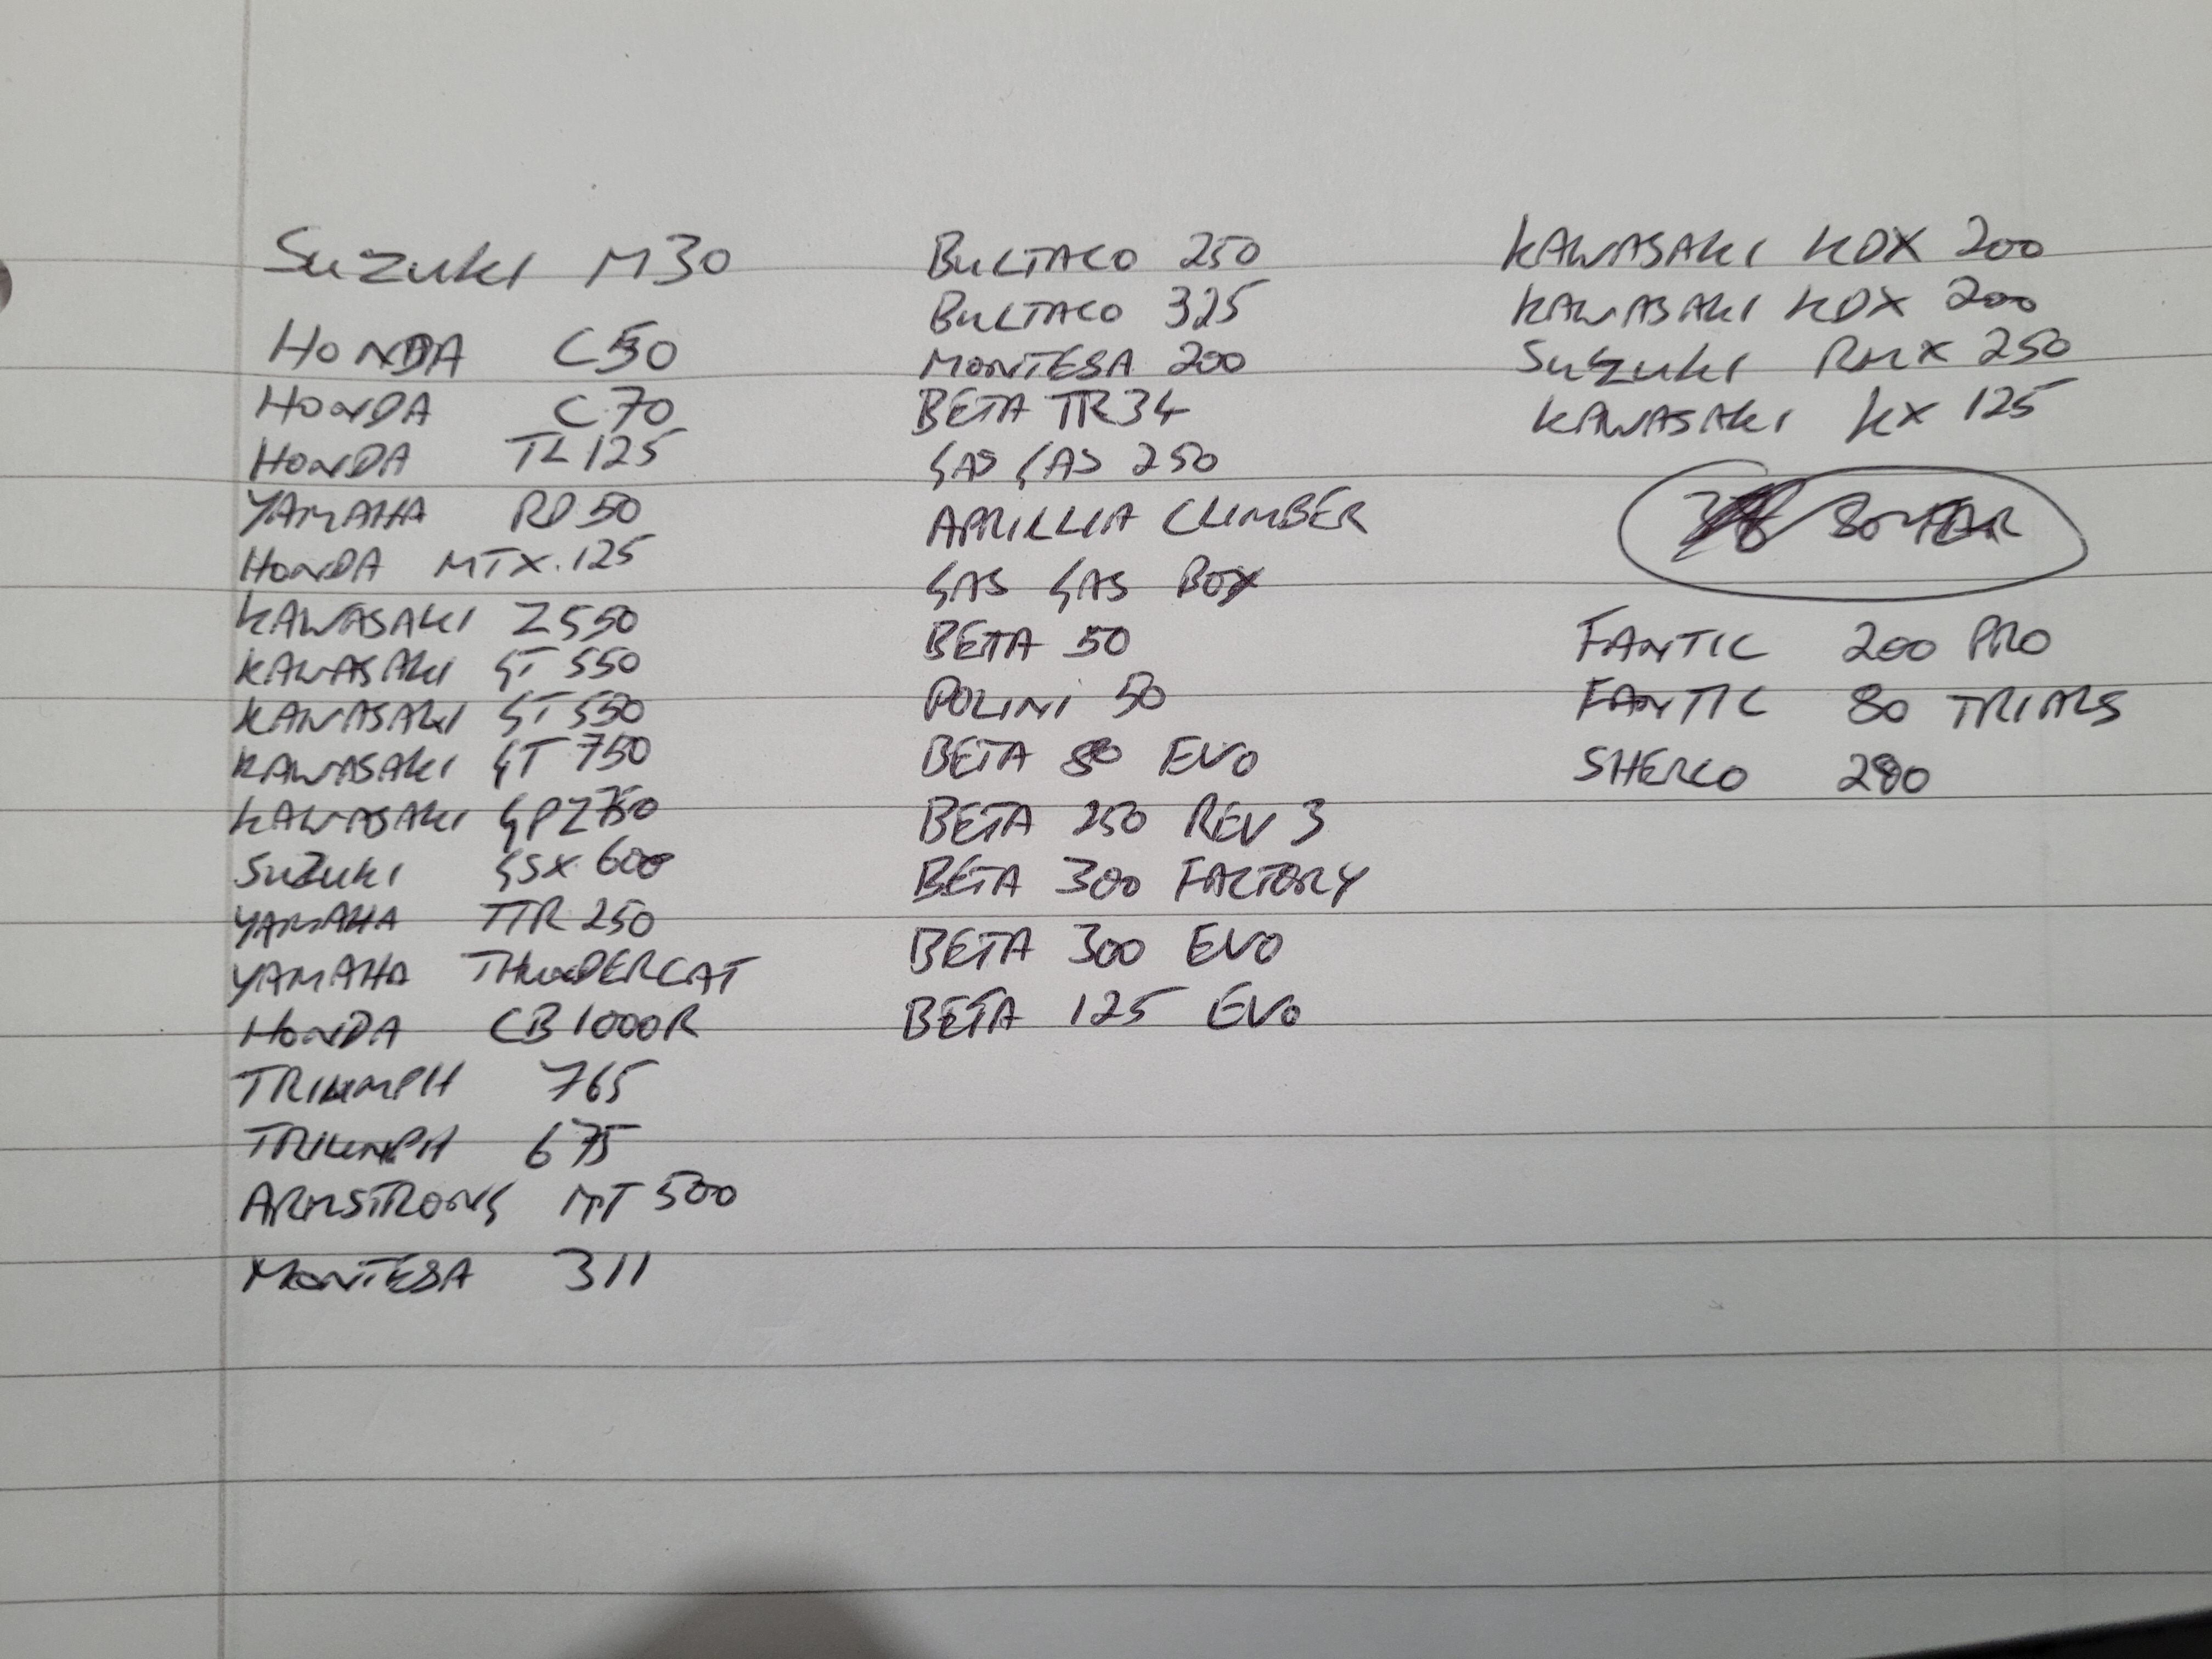 SUZUKI M30
HONDA C50
HONDA C70
HONDA TL125
YAMAHA RD50
HONDA MTX.125
KAWASAKI Z550
KAWASAKI GT 550
KAWASAKI GT 550
KAWASAKI GT 750
KAWASAKI GPZ750
SUZUKI GSX 600
YAMAHA TTR 250
YAMAHA THUNDERCAT
HONDA CB1000R
TRIUMPH 765
TRIUMPH 675
ARMSTRONG MT 500
MONTESA 311
BULTACO 250
BULTACO 325
MONTESA 200
BETA TR34
GAS GAS 250
APRILLIA CLIMBER
GAS GAS BOY
BETA 50
POLINI 50
BETA 80 EVO
BETA 250 REV 3
BETA 300 FACTORY
BETA 300 EVO
BETA 125 EVO
KAWASAKI KDX 200
KAWASAKI KDX 200
SUZUKI RMX 250
KAWASAKI KX 125
FANTIC 200 PRO
FANTIC 80 TRIALS
SHERCO 280